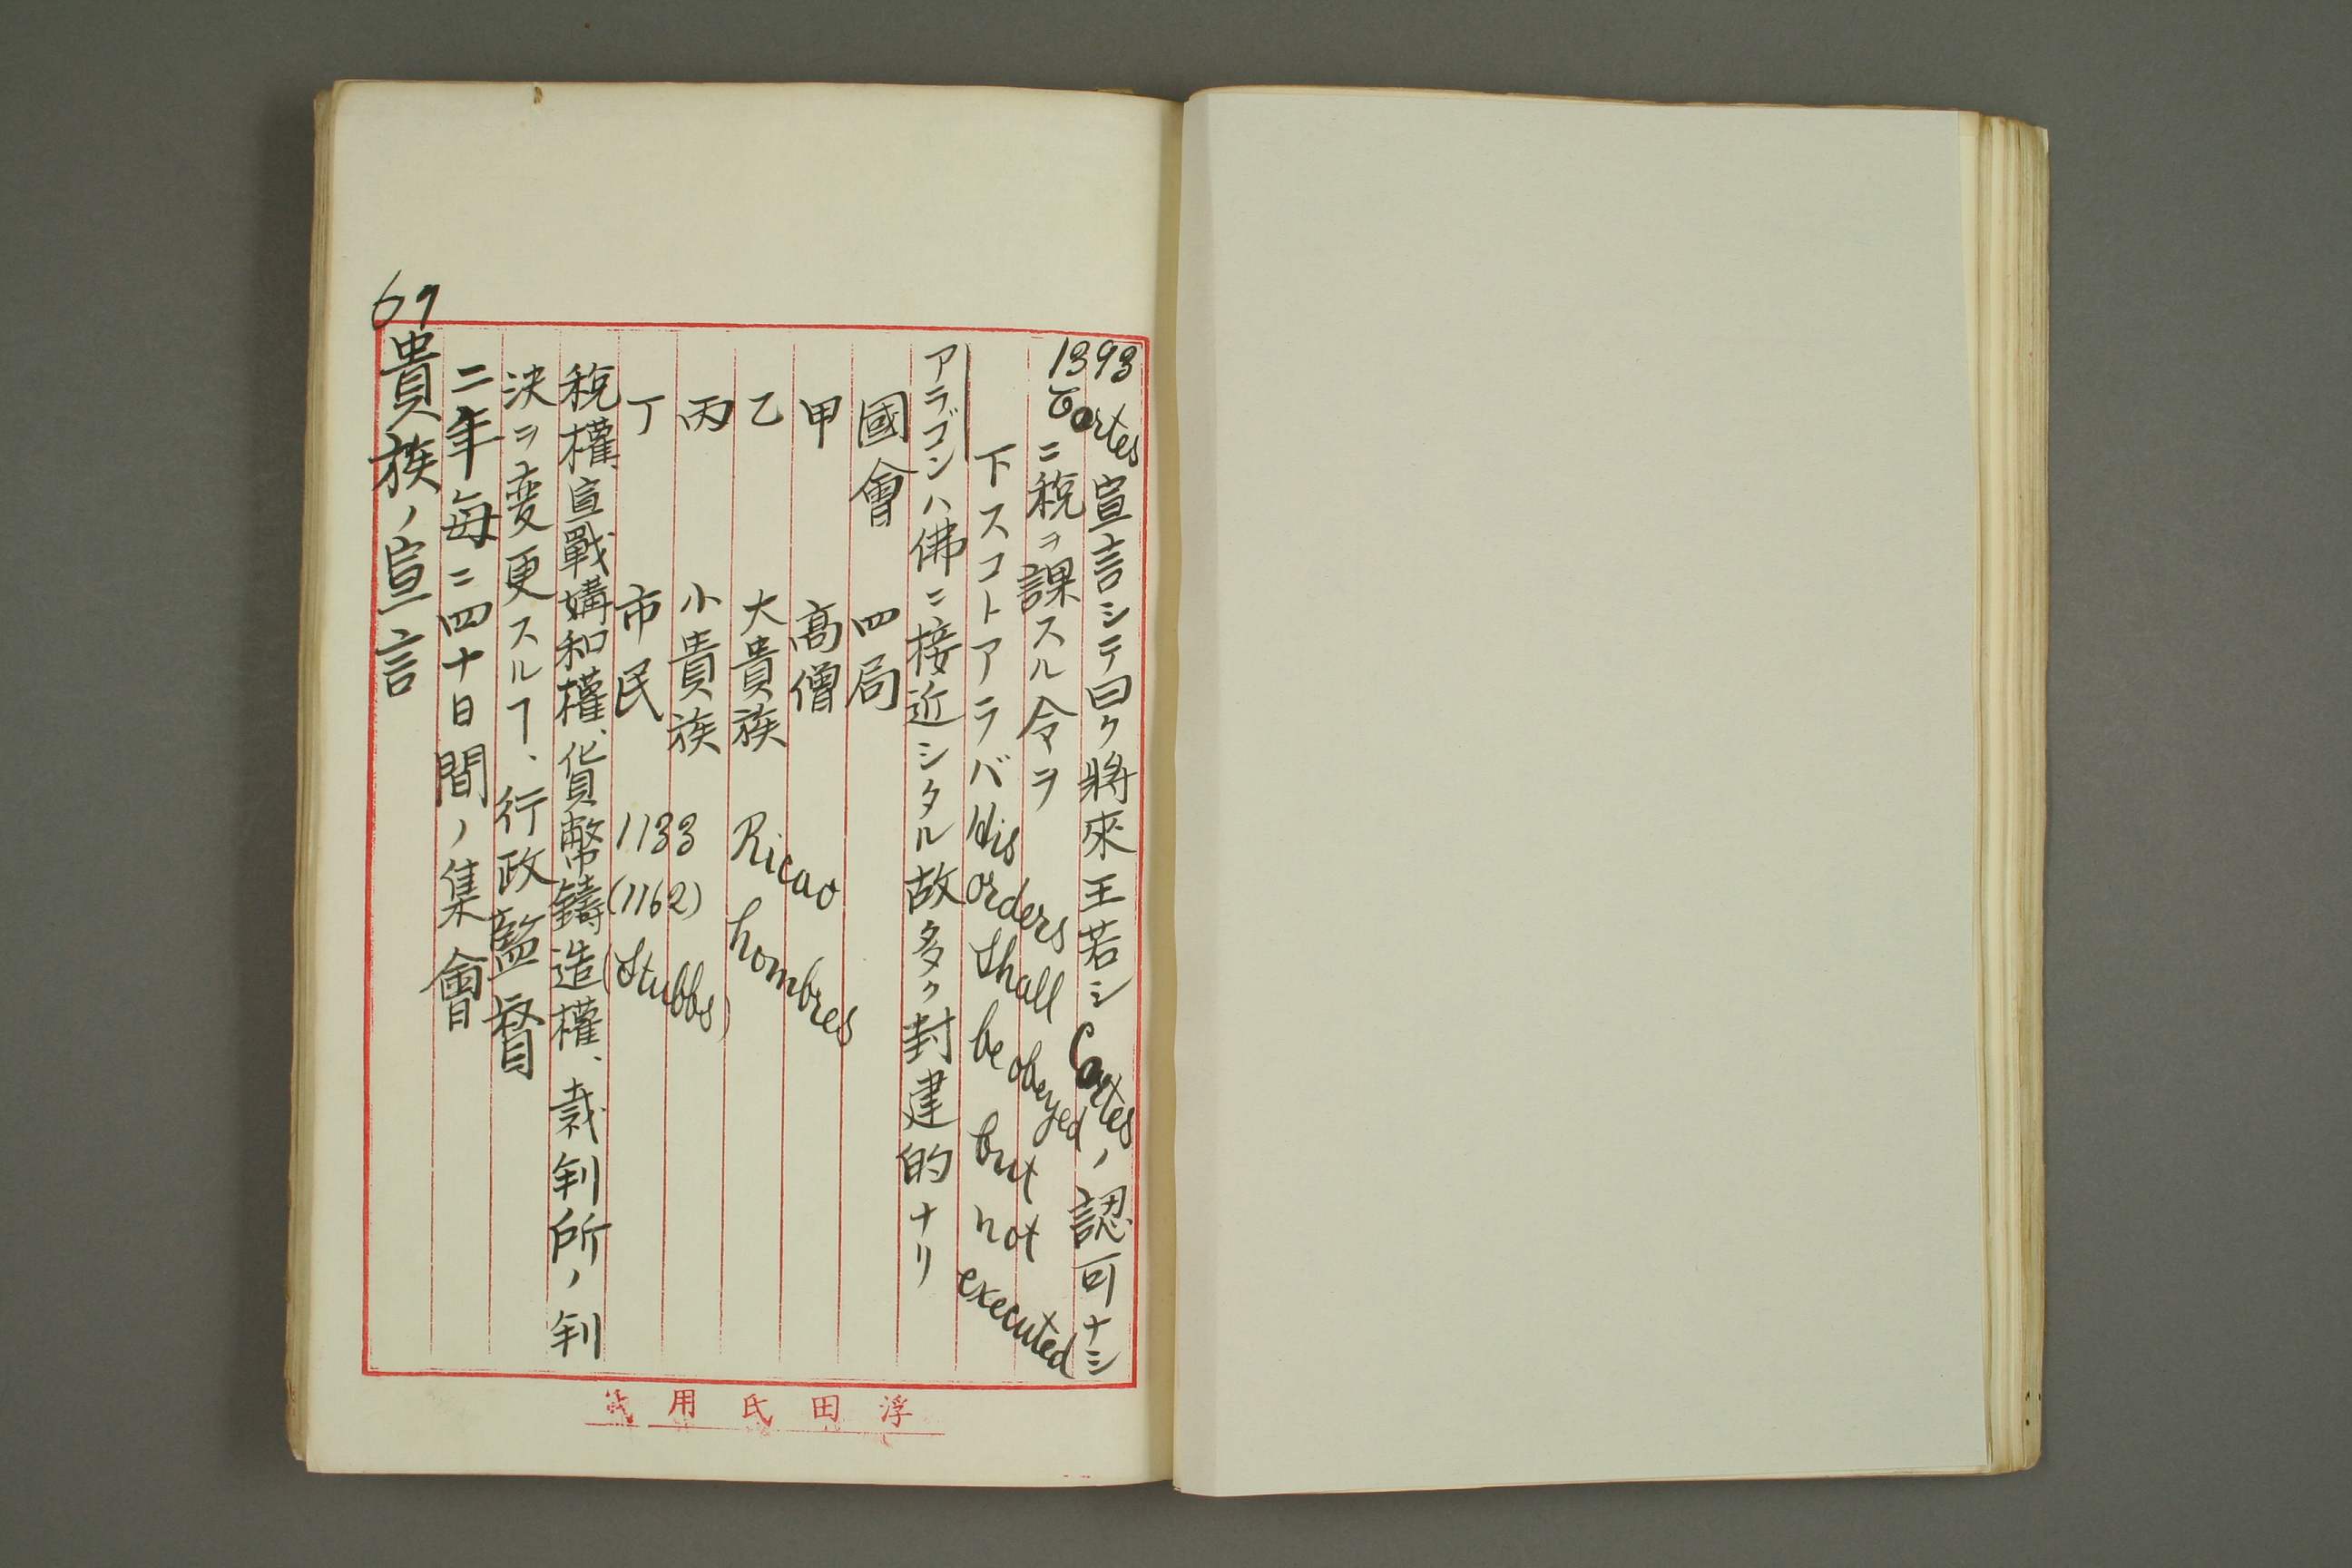 1393 Cortes 宣言シテ曰ク將來王若シ Cortes ノ認可ナシ
ニ税ヲ課スル令ヲ
下スコトアラバ His orders shall be obeyed but not executed
アラゴンハ佛ニ接近シタル故多ク封建的ナリ
國會 四局
甲 高僧
乙 大貴族 Ricao hombres
丙 小貴族
丁 市民 1133 (1162) (Stubbs)
税權宣戰媾和權、貨幣鑄造權、裁判所ノ判
決ヲ変更スルヿ、行政監督
二年毎ニ四十日間ノ集會
69 貴族ノ宣言
浮田氏用